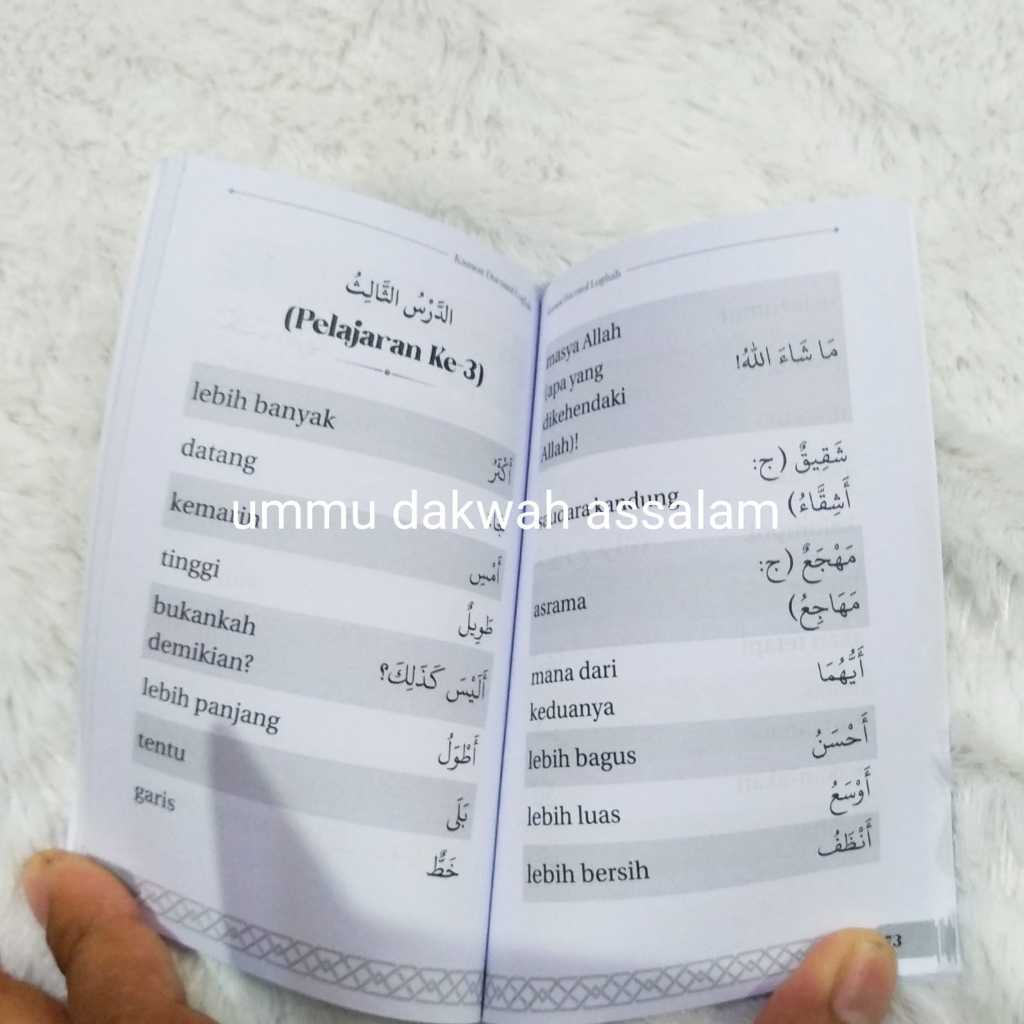 Kamus Durusul Lughah
الدَّرْسُ الثَّالِثُ
(Pelajaran Ke-3)
lebih banyak أَكْثَرُ
datang
kemarin أَمْسِ
tinggi طَوِيلٌ
bukankah
demikian? أَلَيْسَ كَذَلِكَ؟
lebih panjang أَطْوَلُ
tentu بَلَى
garis خَطٌّ
Kamus Durusul Lughah
masya Allah
(apa yang
dikehendaki
Allah)! مَا شَاءَ اللهُ!
saudara kandung شَقِيقٌ (ج:
أَشِقَّاءُ)
asrama مَهْجَعٌ (ج:
مَهَاجِعُ)
mana dari
keduanya أَيُّهُمَا
lebih bagus أَحْسَنُ
lebih luas أَوْسَعُ
lebih bersih أَنْظَفُ
73
ummu dakwah assalam